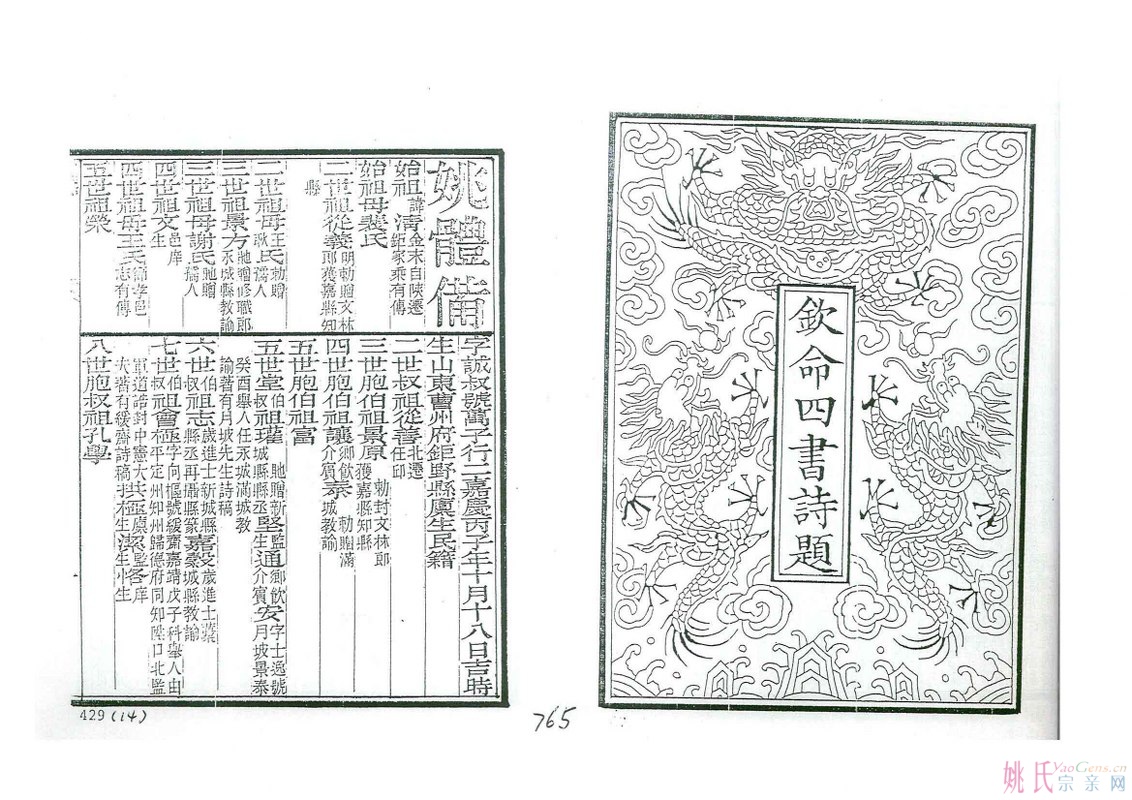 欽命四書詩題
姚體備
字誠叔號萬子行二嘉慶丙子年十月十八日吉時
生山東曹州府鉅野縣廩生民籍
始祖諱清金末自陝遷鉅家乘有傳
始祖母裴氏
二世祖從義明勅贈文林郎獲嘉縣知縣
二世祖母王氏勅贈孺人
三世祖景方馳贈修職郎永城縣教諭
三世祖母謝氏馳贈孺人
四世祖文邑庠生
四世祖母王氏節孝邑志有傳
五世祖榮
二世叔祖從善北遷任邱
三世胞伯祖景原勅封文林郎獲嘉縣知縣
四世胞伯祖讓鄉飲介賓泰勅贈滿城教諭
五世胞伯祖富
五世堂伯叔祖瑾馳贈新城縣縣丞堅監生通鄉飲介賓安字士逸號月坡景泰癸酉舉人任永城滿城教諭著有月坡先生詩稿
六世伯叔祖志歲進士新城縣縣丞再攝縣篆嘉毅歲進士藁城縣教諭
七世伯叔祖會極字向樞號緩齋嘉靖戊子科舉人由平定州知州歸德府同知陞口北監軍道誥封中憲大夫著有緩齋詩稿共極廩生潔監生各庠生
八世胞叔祖孔學
429(14)
765
姚氏YaoGens.cn
宗亲网